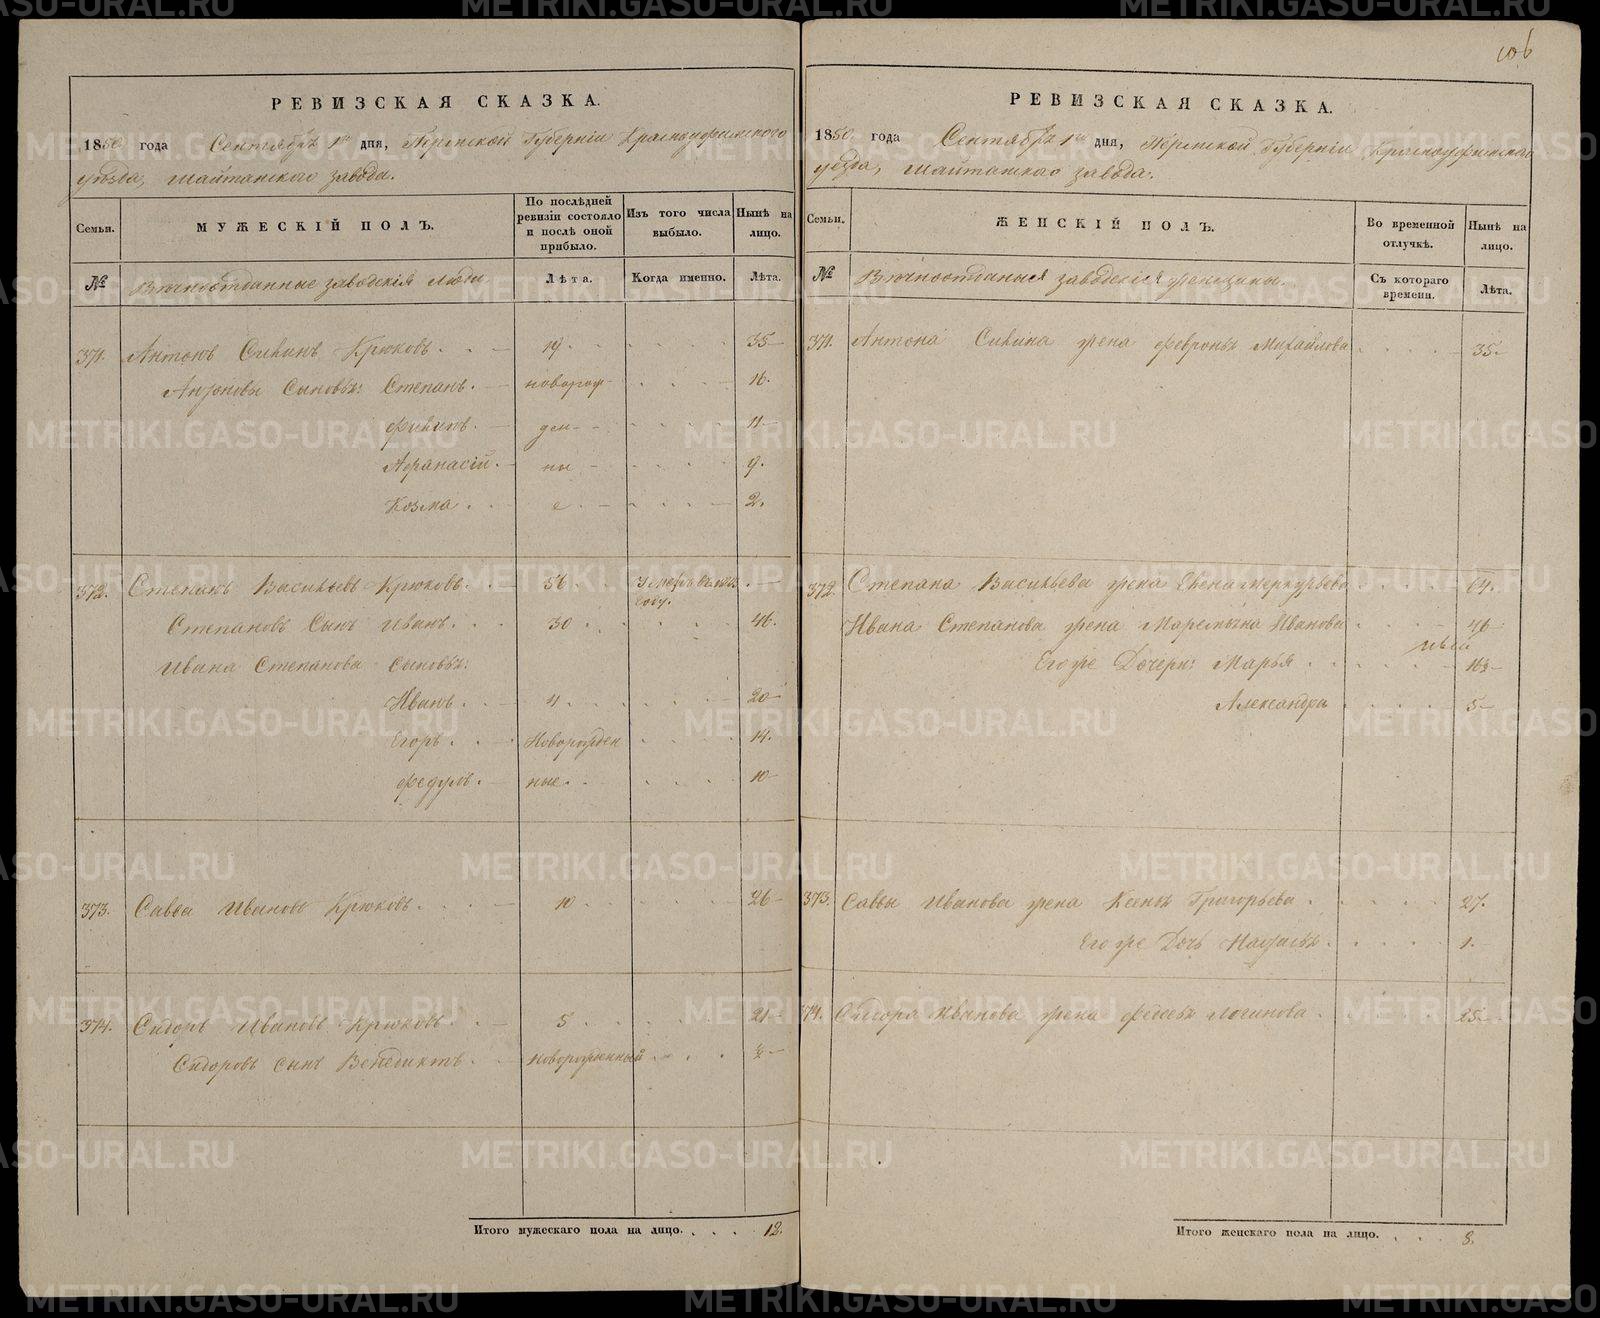 106
РЕВИЗСКАЯ СКАЗКА.
1850 года Сентября 1го дня, Пермской Губерніи Красноуфимскаго
уѣзда, Шайтанскаго завода.
Семьи. МУЖЕСКІЙ ПОЛЪ. По послѣдней ревизіи состояло и послѣ оной прибыло. Изъ того числа выбыло. Нынѣ на лицо.
№ Вѣчноотданные заводскія люди Лѣта. Когда именно. Лѣта.
371. Антонъ Силинъ Крюковъ. 19. 35
Антоновы Сыновья: Степанъ. новорож- 16.
Филипъ. ден- 11
Афанасій. ны 9.
Козма е. 2.
372. Степанъ Васильевъ Крюковъ. 56 Умеръ въ
году.
Степановъ Сынъ Иванъ. 30 46.
Ивана Степанова Сыновья:
Иванъ. 4 20
Егоръ. Новорожден 14.
Федулъ. ные. 10
373. Савва Ивановъ Крюковъ. 10 26
374. Сидоръ Ивановъ Крюковъ. 5 21
Сидоровъ сынъ Венедиктъ. новорожденный ½
Итого мужескаго пола на лицо. 12.
РЕВИЗСКАЯ СКАЗКА.
1850 года Сентября 1го дня, Пермской Губерніи Красноуфимскаго
уѣзда, Шайтанскаго завода.
Семьи. ЖЕНСКІЙ ПОЛЪ. Во временной отлучкѣ. Нынѣ на лицо.
№ Вѣчноотданныя заводскія женщины. Съ котораго времени. Лѣта.
371. Антона Силина жена Февронья Михайлова 35.
372. Степана Васильева жена Елена Меркурьева 64.
Ивана Степанова жена Маремьяна Иванова 46
Его же Дочери: Марья 16
Александра 5
373. Саввы Иванова жена Ксенья Григорьева 27.
Его же Дочь Наталья 1.
374. Сидора Иванова жена Федосья Логинова 25
Итого женскаго пола на лицо. 8.
METRIKI.GASO-URAL.RU